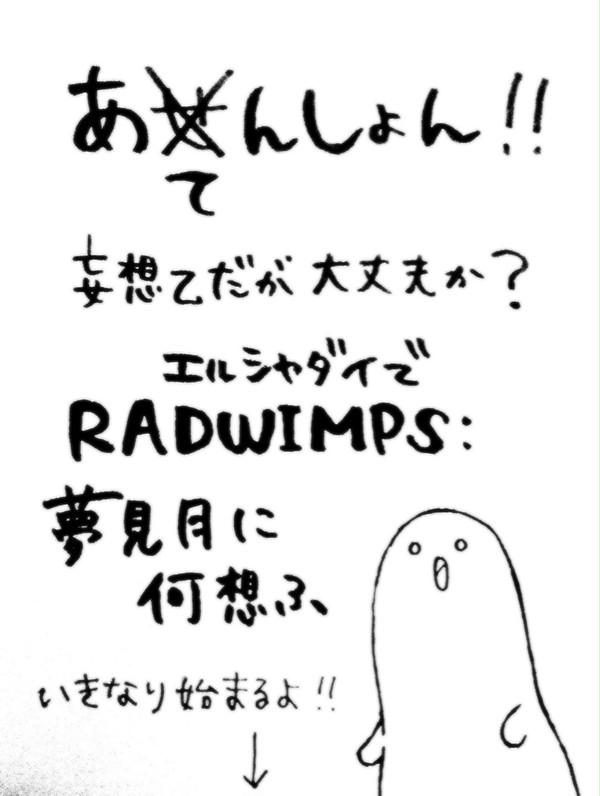 あてんしょん!!
妄想乙だが 大丈夫か?
エルシャダイで
RADWIMPS:
夢見月に
何想ふ、
いきなり始まるよ!!